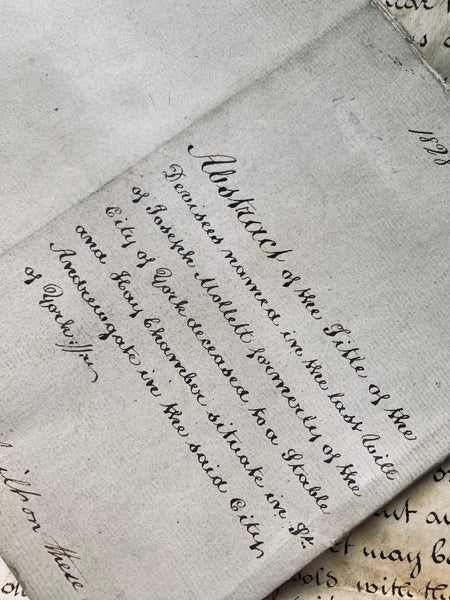 1828
Abstract of the Title of the
Devisees named in the last Will
of Joseph Mollett formerly of the
City of York deceased to a Stable
and Hay Chamber situate in St.
Andrewgate in the said City
of York
these
but
may be
with